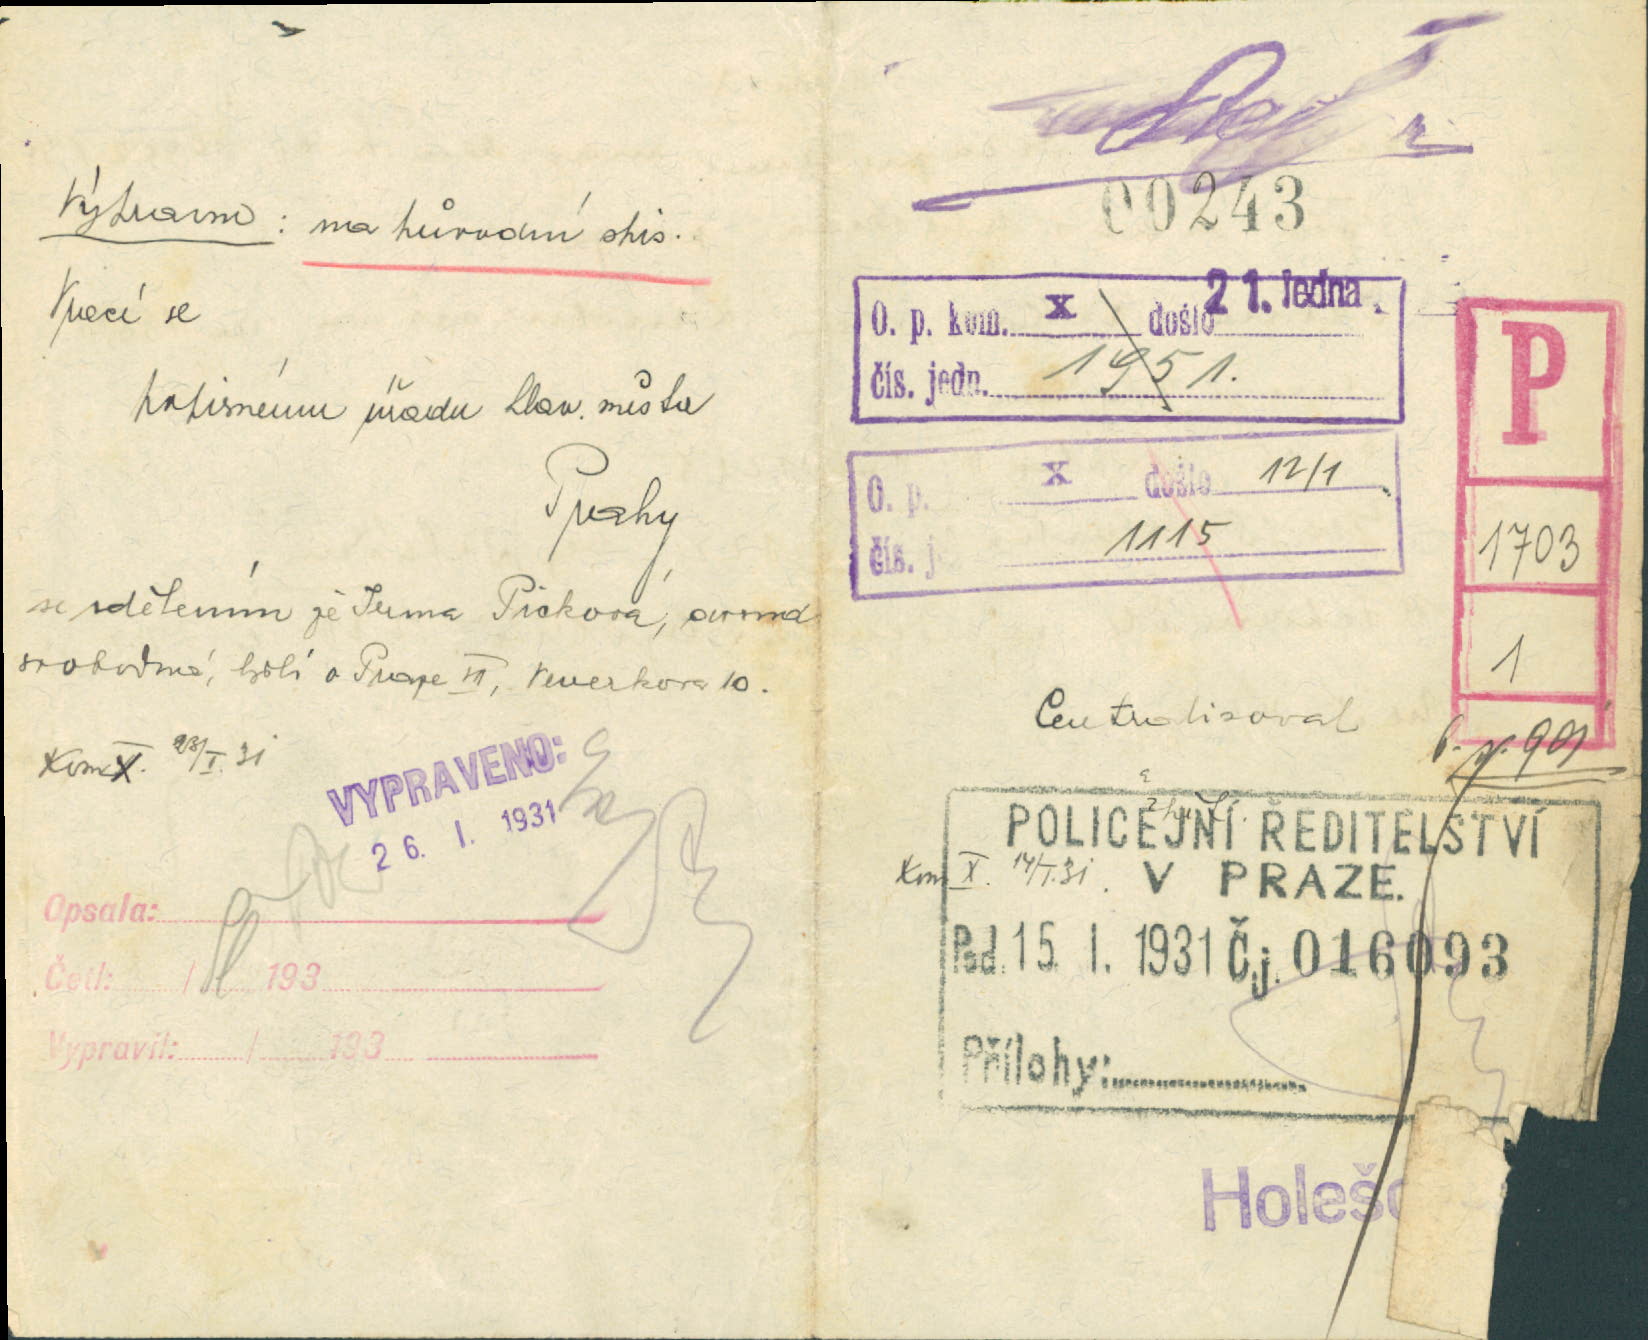 Výpravna: na původní spis.
Vrací se
popisnému úřadu hlav. města
Prahy
se sdělením že Irma Picková, ovdvě
svobodná, bydlí v Praze VII, Veverkova 10.
Kom X. 23/I. 31
VYPRAVENO:
26. I. 1931
Opsala:
Četl: / 193
Vypravil: / 193
00243
O. p. kom. X došlo 21. ledna
čís. jedn. 1951.
O. p. X došlo 12/1
čís. j 1115
P
1703
1
Centralisoval
Kom X. 14/I.31.
POLICEJNÍ ŘEDITELSTVÍ
V PRAZE.
Pod. 15. I. 1931 Č.j. 016093
Přílohy:
Holešo